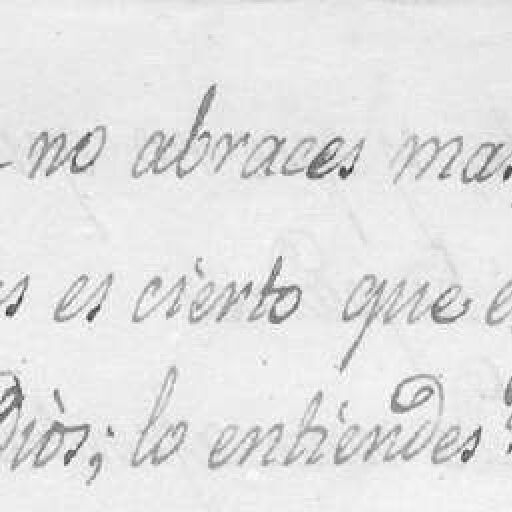 no abraces mas
es cierto que
Diòs; lo entiendes?